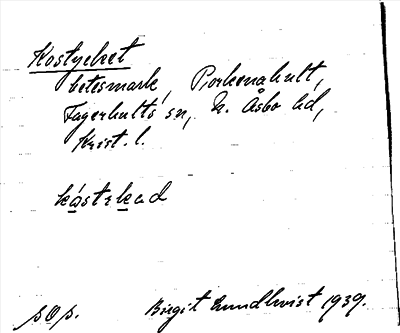 Kostycket
betesmark, Porkenahult,
Fagerhults sn, N. Åsbo hd,
Krist. l.
sOp. Birgit Lundkvist 1939.